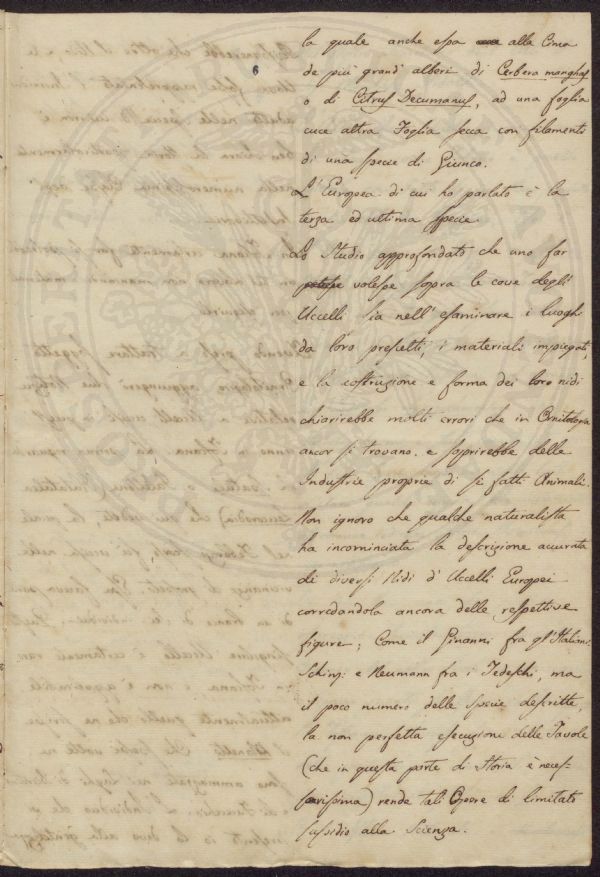 6
la quale anche essa alla Cima
de più grandi alberi di Cerbera manghas
o di Citrus Decumanus, ad una foglia
cuce altra Foglia secca con filamenti
di una specie di Giunco.
L'Europea di cui ho parlato è la
terza ed ultima specie.
Lo Studio approfondato che uno far
potesse volesse sopra le cove degli
Uccelli sia nell'esaminare i luoghi
da loro prescelti, i materiali impiegati,
e la costruzione e forma dei loro nidi
chiarirebbe molti errori che in Ornitologia
ancor si trovano, e scoprirebbe delle
Industrie proprie di si fatti Animali.
Non ignoro che qualche naturalista
ha incominciata la descrizione accurata
di diversi Nidi d'Uccelli Europei
corredandola ancora delle respettive
figure; Come il Ginanni fra gl'Italiani.
Schinz e Neumann fra i Tedeschi, ma
il poco numero delle specie descritte,
la non perfetta esecuzione delle Tavole
(che in questa parte di Storia è neces-
sarissima) rende tali Opere di limitato
sussidio alla Scienza.